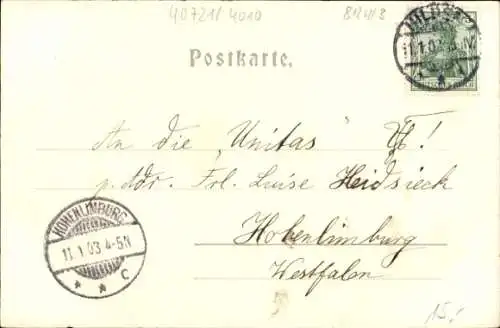 40721/4010
Postkarte.
11.1.03
An die "Unitas"
p. Adr. Frl. Luise Heidsieck
HOHENLIMBURG
11.1.03 4-5N
* * C
Hohenlimburg
Westfalen
15,-